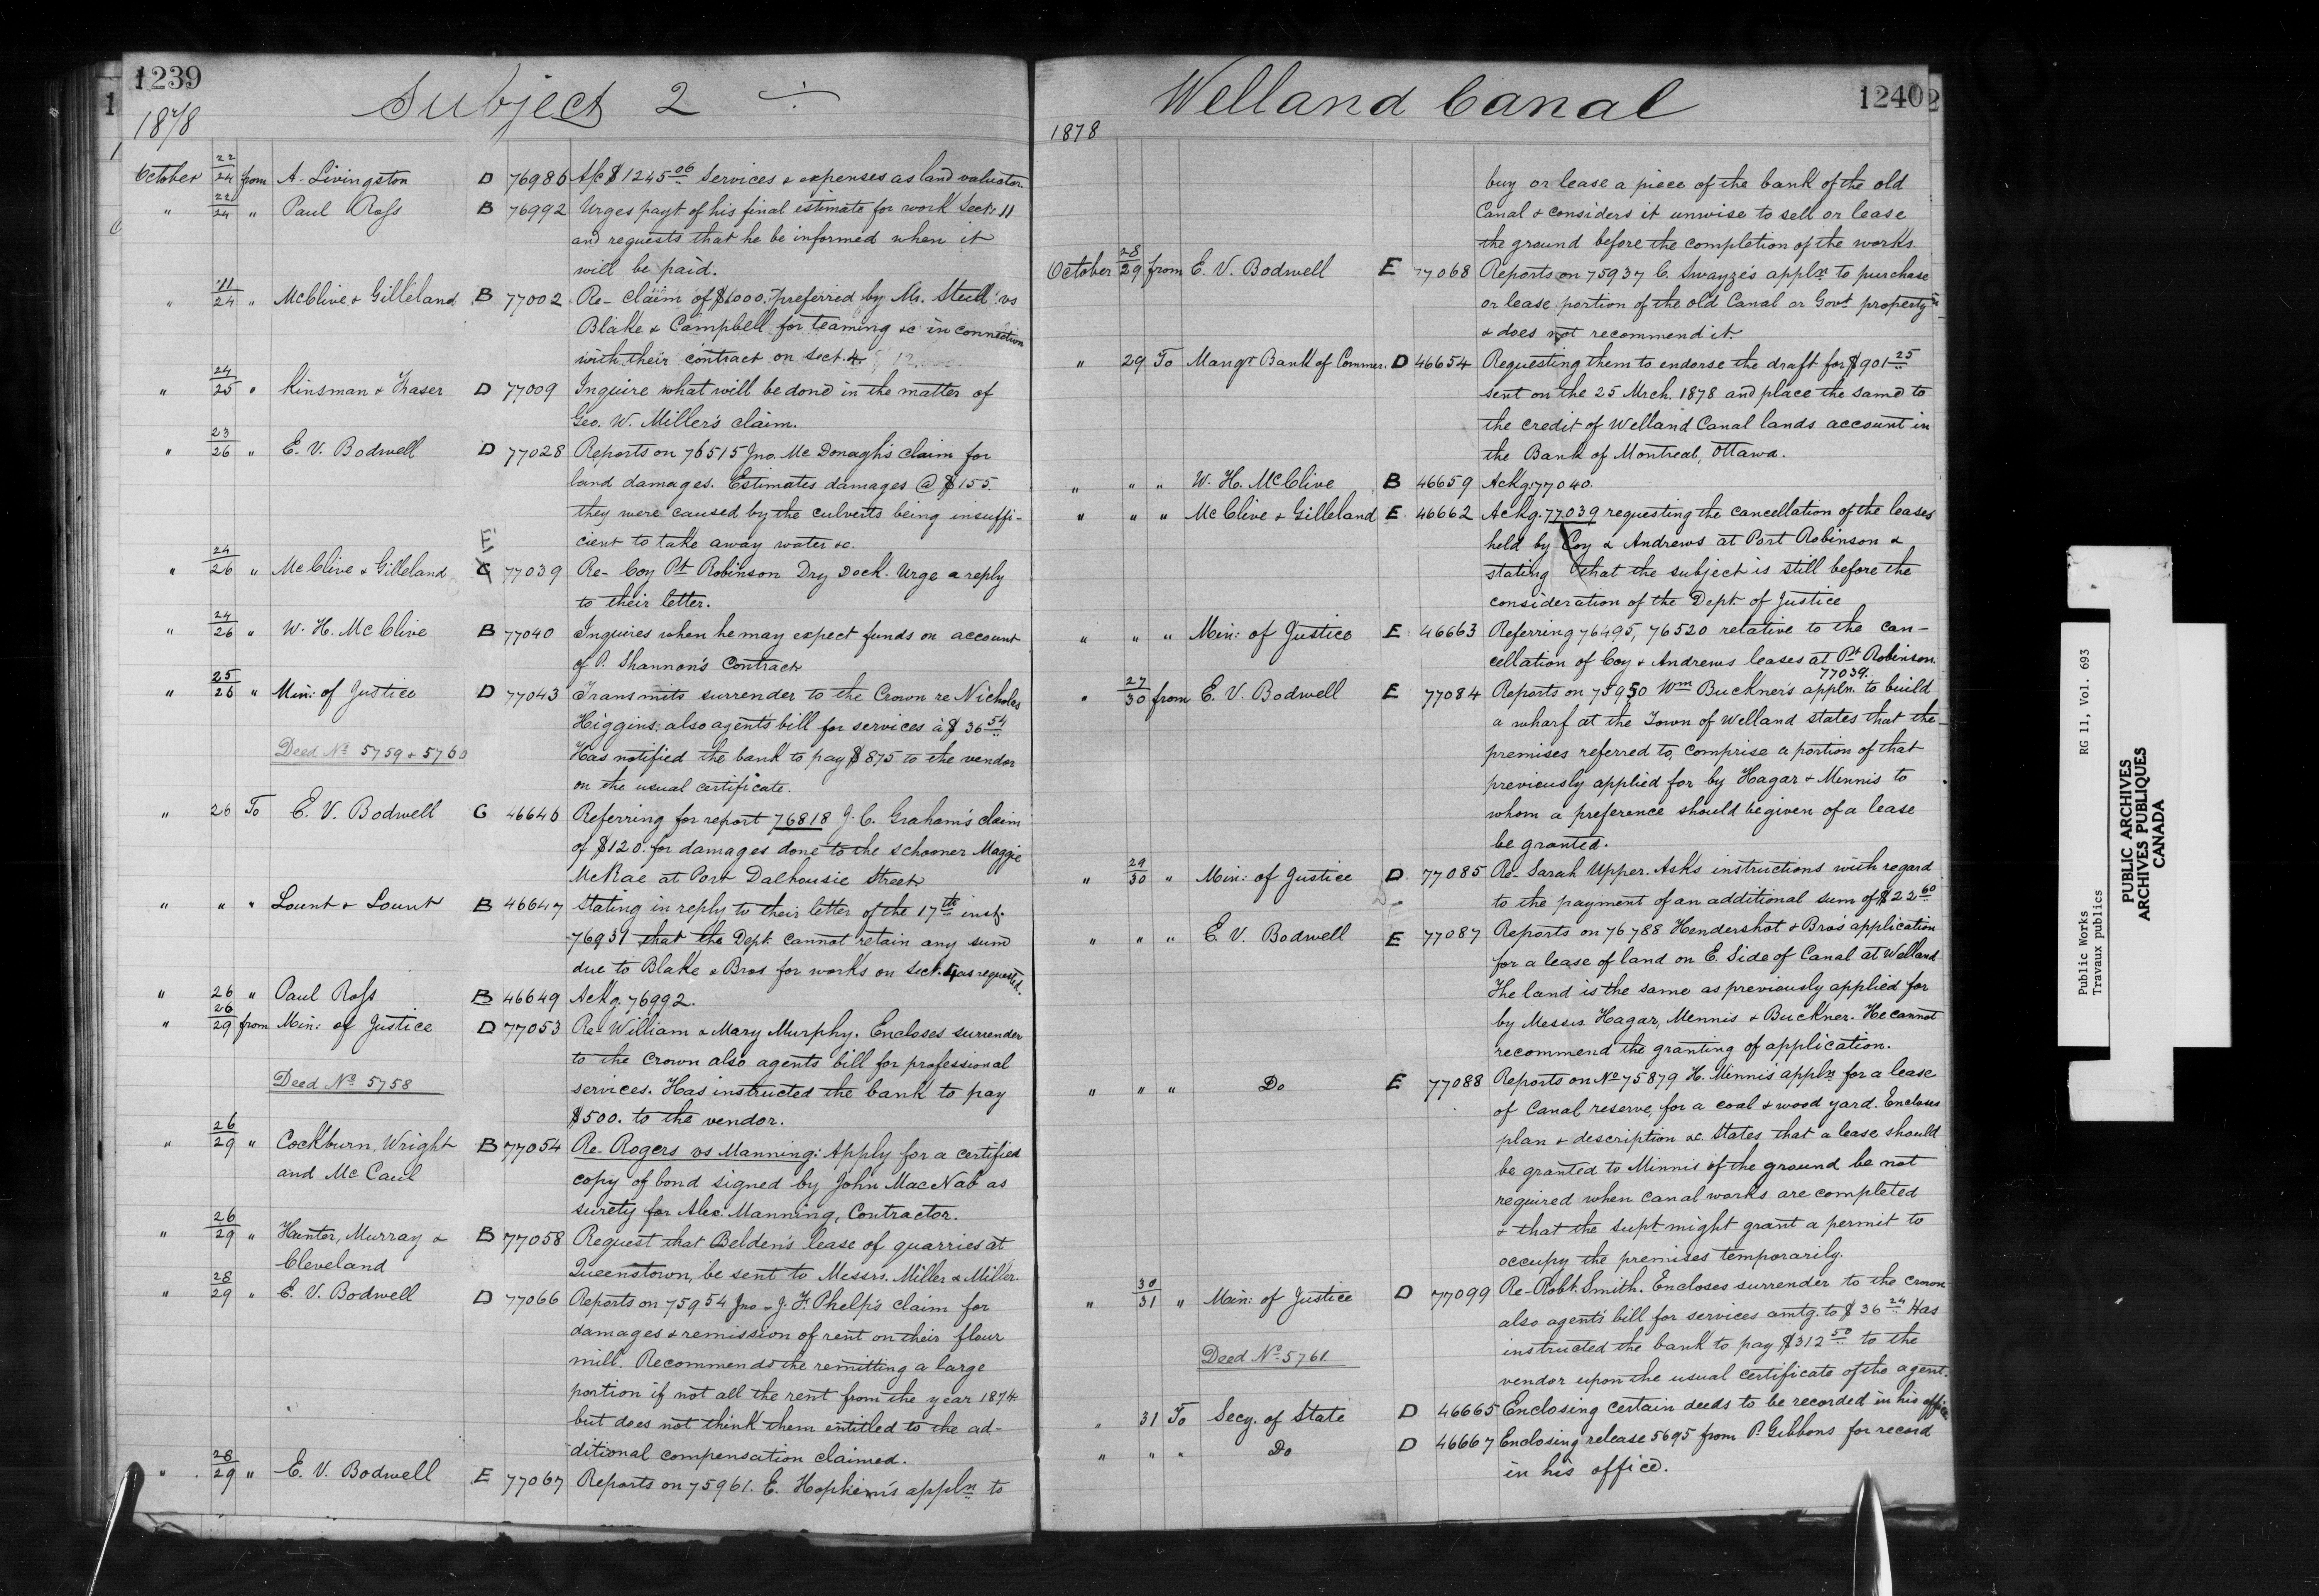 1239
Subject 2 ÷
1878
October 22/24 from A. Livingston D 76986 A/c $1245.06 Services & expenses as land valuator.
" 22/24 " Paul Ross B 76992 Urges payt of his final estimate for work Sect. 11
and requests that he be informed when it
will be paid.
" 11/24 " McClive & Gilleland B 77002 Re- Claim of $1000. preferred by Mr. Stull vs
Blake & Campbell for teaming &c in connection
with their contract on Sect. 4.
" 24/25 " Kinsman & Fraser D 77009 Inquire what will be done in the matter of
Geo. W. Miller's claim.
" 23/26 " E. V. Bodwell D 77028 Reports on 76515 Jno. McDonagh's claim for
land damages. Estimates damages @ $155.
they were caused by the culverts being insuffi-
cient to take away water &c.
E
" 24/26 " McClive & Gilleland C 77039 Re- Coy Pt Robinson Dry Dock. Urge a reply
to their letter.
" 24/26 " W. H. McClive B 77040 Inquires when he may expect funds on account
of P. Shannon's Contract
" 25/26 " Min: of Justice D 77043 Transmits surrender to the Crown re Nicholas
Higgins: also agent's bill for services à $36.54
Deed No 5759 & 5760 Has notified the bank to pay $875 to the vendor
on the usual certificate.
" 26 To E. V. Bodwell C 46646 Referring for report 76818 J. C. Graham's claim
of $120. for damages done to the schooner Maggie
McRae at Port Dalhousie Street
" " " Lount & Lount B 46647 Stating in reply to their letter of the 17th inst.
76931 that the Dept. cannot retain any sum
due to Blake & Bros for works on Sect. 4, as requested.
" 26 " Paul Ross B 46649 Ackg. 76992.
" 26/29 from Min: of Justice D 77053 Re- William & Mary Murphy. Encloses surrender
to the Crown also agents bill for professional
Deed No 5758 services. Has instructed the bank to pay
$500. to the vendor.
" 26/29 " Cockburn, Wright B 77054 Re- Rogers vs Manning: Apply for a certified
and McCaul copy of bond signed by John MacNab as
surety for Alex. Manning, Contractor.
" 26/29 " Hunter, Murray & B 77058 Request that Belden's lease of quarries at
Cleveland Queenstown, be sent to Messrs. Miller & Miller.
" 28/29 " E. V. Bodwell D 77066 Reports on 75954 Jno. & J. F. Phelp's claim for
damages & remission of rent on their flour
mill. Recommends the remitting a large
portion if not all the rent from the year 1874
but does not think them entitled to the ad-
ditional compensation claimed.
" 28/29 " E. V. Bodwell E 77067 Reports on 75961. E. Hopkins's appln to
Welland Canal
1240
1878
buy or lease a piece of the bank of the old
Canal & considers it unwise to sell or lease
the ground before the completion of the works
October 28/29 from E. V. Bodwell E 77068 Reports on 75937 C. Swayze's appln to purchase
or lease portion of the old Canal or Govt property
& does not recommend it.
" 29 To Mangr Bank of Commer. D 46654 Requesting them to endorse the draft for $901.25
sent on the 25 Mrch. 1878 and place the same to
the credit of Welland Canal lands account in
the Bank of Montreal, Ottawa.
" " " W. H. McClive B 46659 Ackg. 77040.
" " " McClive & Gilleland E 46662 Ackg. 77039 requesting the cancellation of the leases
held by Coy & Andrews at Port Robinson &
stating that the subject is still before the
consideration of the Dept. of Justice
" " " Min: of Justice E 46663 Referring 76495, 76520 relative to the can-
cellation of Coy & Andrews leases at Pt Robinson.
77039.
" 27/30 from E. V. Bodwell E 77084 Reports on 75950 Wm Buckner's appln. to build
a wharf at the Town of Welland states that the
premises referred to, comprise a portion of that
previously applied for by Hagar & Mennis to
whom a preference should be given if a lease
be granted.
" 29/30 " Min: of Justice D. 77085 Re- Sarah Upper. Asks instructions with regard
to the payment of an additional sum of $22.60
" " " E. V. Bodwell E 77087 Reports on 76788 Hendershot & Bro's application
for a lease of land on E. Side of Canal at Welland
The land is the same as previously applied for
by Messrs. Hagar, Mennis & Buckner. He cannot
recommend the granting of application.
" " " Do E 77088 Reports on No 75879 H. Minnis appln for a lease
of Canal reserve, for a coal & wood yard. Encloses
plan & description &c. States that a lease should
be granted to Minnis if the ground be not
required when canal works are completed
& that the supt might grant a permit to
occupy the premises temporarily.
" 30/31 " Min: of Justice D 77099 Re- Robt. Smith. Encloses surrender to the Crown
also agent's bill for services amtg. to $36.24 Has
instructed the bank to pay $312.50 to the
Deed No 5761.
vendor upon the usual certificate of the agent.
" 31 To Secy. of State D 46665 Enclosing certain deeds to be recorded in his office
" " " Do D 46667 Enclosing release 5695 from P. Gibbons for record
in his office.
Public Works RG 11, Vol. 693
Travaux publics
PUBLIC ARCHIVES
ARCHIVES PUBLIQUES
CANADA